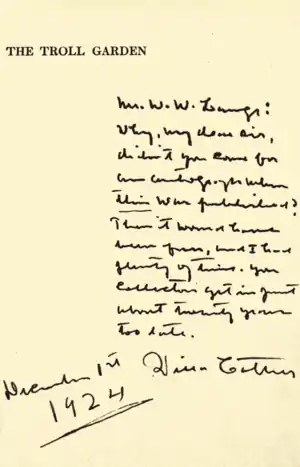 THE TROLL GARDEN
Mr. W. W.
Why, my dear sir,
didn't you come for
an autograph when
this was published?
Then it would have
been free, and I had
plenty of time. You
collectors get in just
about twenty years
too late.
Willa Cather
December 1st
1924